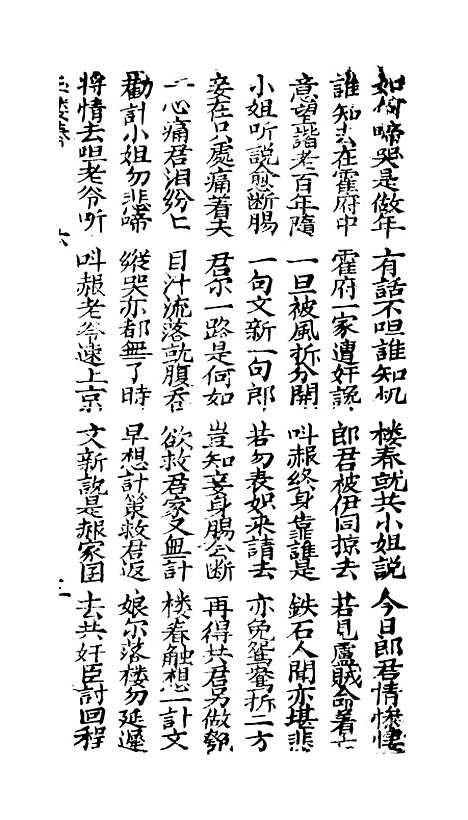 如何啼哭是做年 有話不呾誰知机 楼春就共小姐説 今日郎君情慘悽
誰知夫在霍府中 霍府一家遭奸讒 郎君被伊同掠去 若見盧賊命着亡
意望諧老百年隨 一旦被風折分開 叫赧終身靠誰是 鉄石人聞亦堪悲
小姐听説愈断腸 一句文新一句郎 若勿表來請去 亦免鴛鴦折二方
妾在只處痛着夫 君尔一路是何如 豈知妾身腸断 再得共君另做
一心痛君泪紛匕 目汁流落就腹吞 欲救君家又無計 楼春触想一計文
勸計小姐勿悲啼 縱哭亦都無了時 早想計策救君返 娘尔落楼勿延遲
将情去呾老爷听 叫赧老爷速上京 文新説是赧家囝 去共奸臣討回程
六